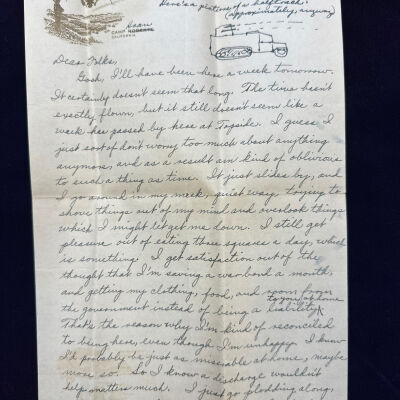 Here's a picture of a halftrack!
(approximately, anyway)
CAMP ROBERTS
CALIFORNIA
Dear Folks,
Gosh, I'll have been here a week tomorrow.
It certainly doesn't seem that long. The time hasn't
exactly flown, but it still doesn't seem like a
week has passed by here at Topside. I guess I
just sort of don't worry too much about anything
anymore, and as a result am kind of oblivious
to such a thing as time. It just slides by, and
I go around in my meek, quiet way trying to
shove things out of my mind and overlook things
which I might let get me down. I still get
pleasure out of eating three squares a day, which
is something! I get satisfaction out of the
thought that I'm saving a war bond a month,
and getting my clothing, food, and room from
the government instead of being a liability to you at home
That's the reason why I'm kind of reconciled
to being here, even though I'm unhappy. I know
I'd probably be just as miserable at home, maybe
more so. So I know a discharge wouldn't
help matters much. I just go plodding along,